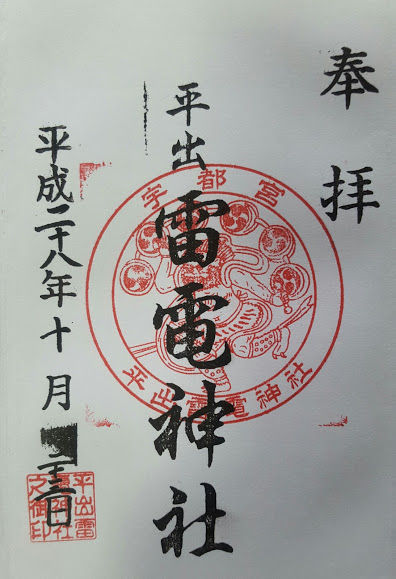 奉拝
平出
雷電神社
宇都宮
平出雷電神社
平成二十八年十月二十三日
平出雷
電神社
之御印